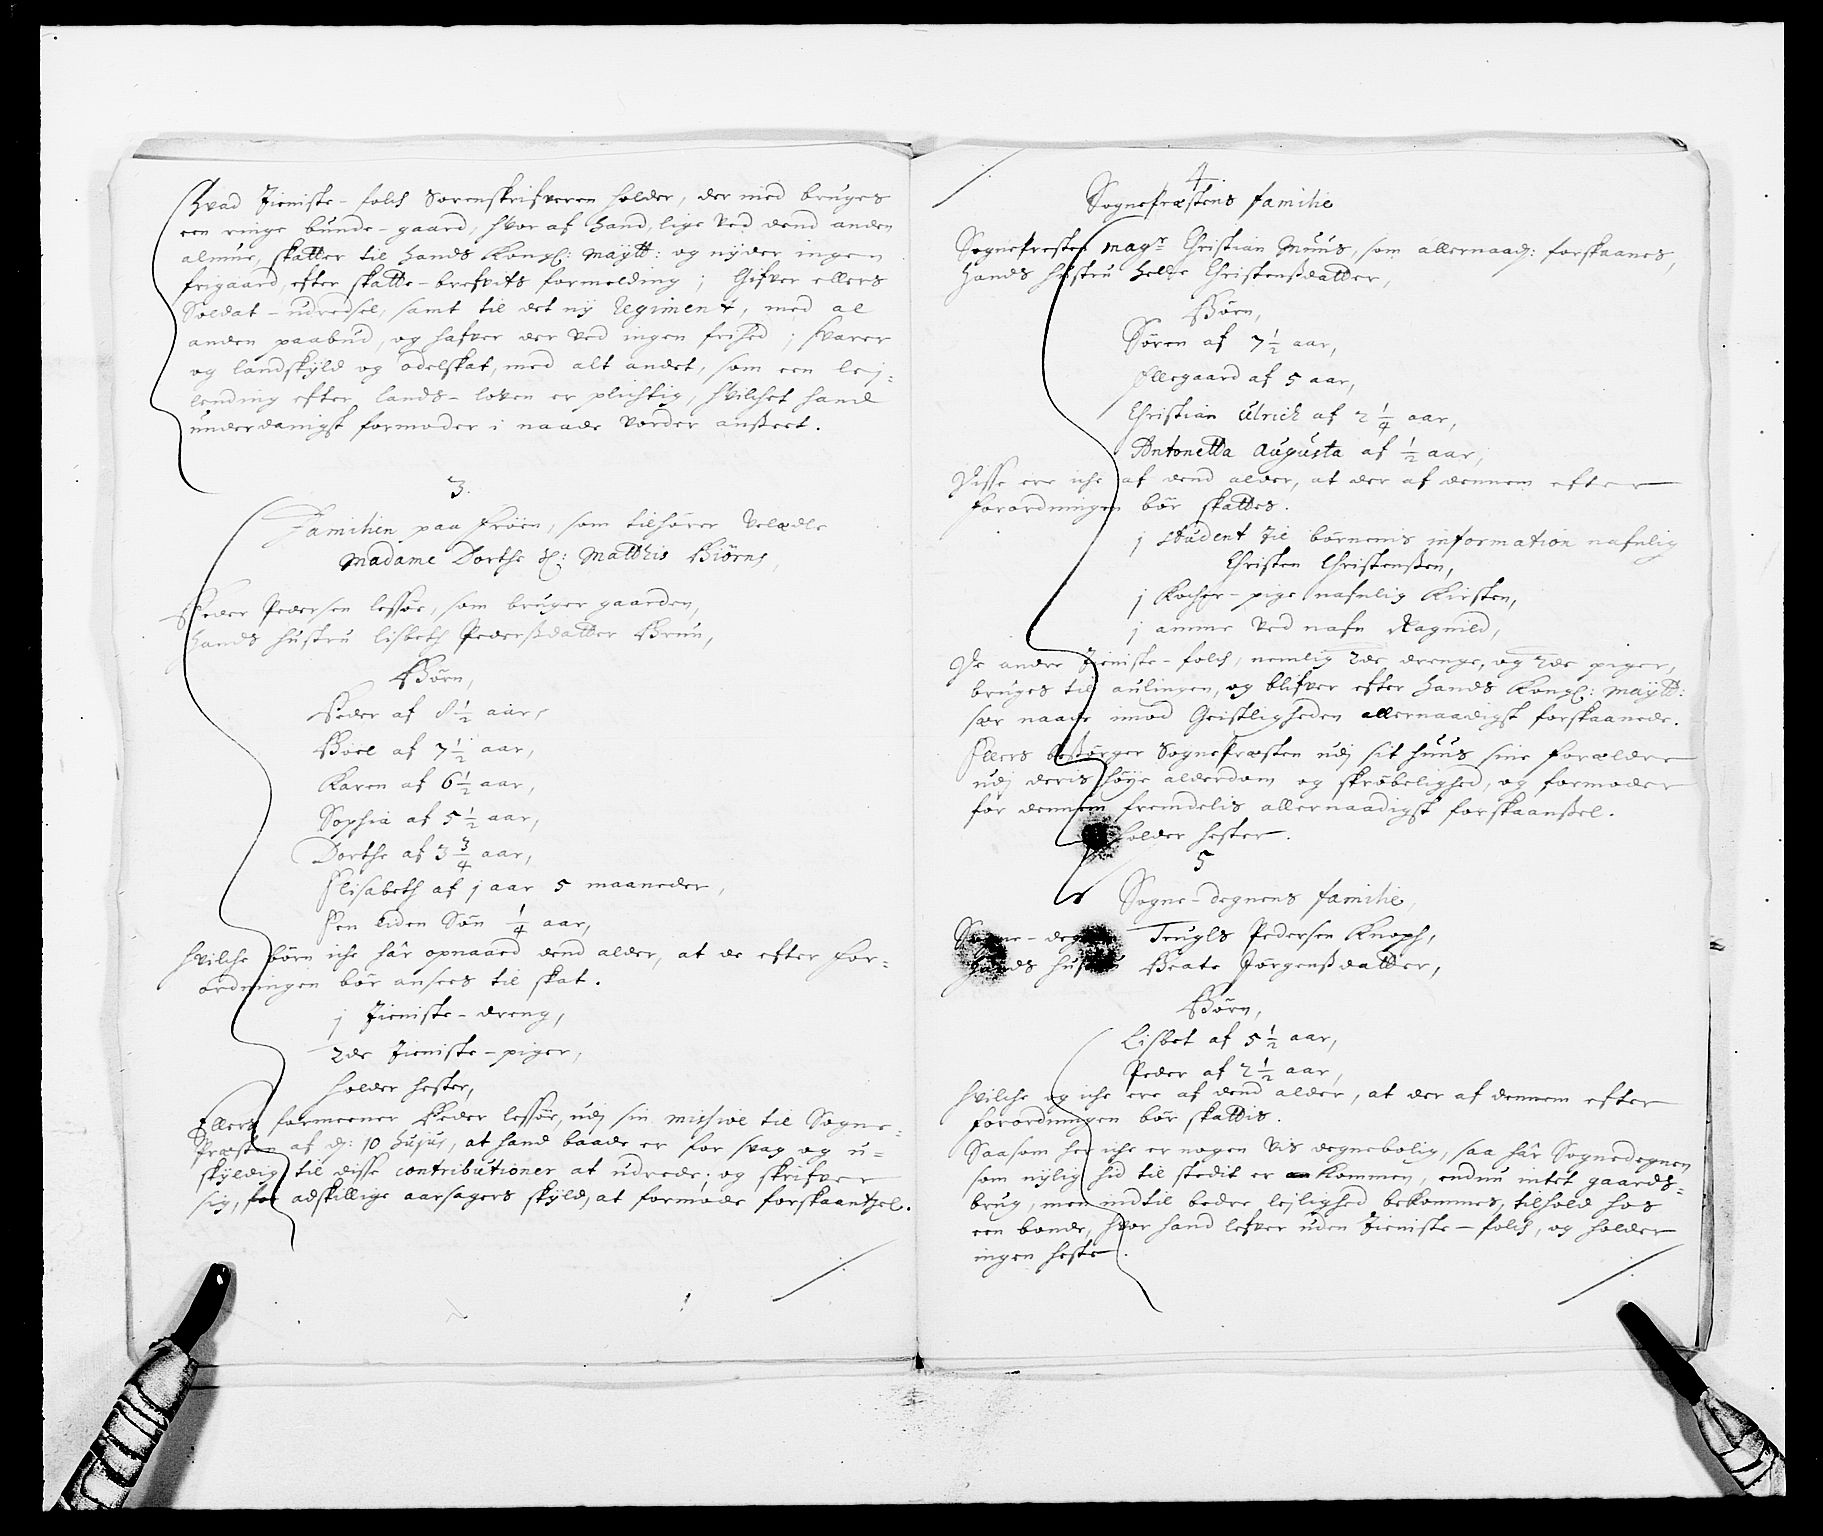 Hvad Tieniste-folch Sorenskrifveren holder, der med bruges
een ringe bunde-gaard, hvor af hand, lige ved dend anden
almue, skatter til hands Kongl: Maytt: og nyder ingen
frigaard, efter skatte-brefvits formelding; Gifver ellers
Soldat-udredsel, samt til det ny Regiment, med al
anden paabud, og hafver der ved ingen frihed; svarer
og landskyld og odelskat, med alt andet, som een lej=
lending efter lands-loven er plichtig, hvilchet hand
underdanigst formoder i naade vorder anseet.
3.
Familien paa Fröen, som tilhörer Velædle
Madame Dorthe Sl: Matthis Biörns,
Peder Pedersen lessöe, som bruger gaarden,
Hands hustru lisbeth Pedersdatter Bruun,
Börn,
Peder af 8 1/2 aar,
Boel af 7 1/2 aar,
Karen af 6 1/2 aar,
Sophia af 5 1/2 aar,
Dorthe af 3 3/4 aar,
Elisabeth af j aar 5 maaneder,
Een liden Sön 1/4 aar,
Hvilche börn iche hâr opnaaed dend alder, at de efter for=
ordningen bör ansees til skat.
j Tieniste-dreng,
2de Tieniste-piger,
holder hester,
Ellers formeener Peder lessöe, udj sin missive til Sogne=
Præsten af d: 10 hujus, at hand baade er for svag og u=
skyldig til disse contributioner at udrede; og skrifver
sig, for adskillige aarsagers skyld, at formode forskaansel.
4.
Sognepræstens familie
Sognepresten magr Christian Muus, som allernaad: forskaanes,
Hands hustru Helle Christensdatter,
Börn,
Sören af 7 1/2 aar,
Ellegaard af 5 aar,
Christian Ulrich af 2 1/4 aar,
Antonetta Augusta af 1/2 aar,
Disse ere iche af dend alder, at der af dennem efter
forordningen bör skattes.
j Student til börnenis information nafnlig
Christen Christensen,
j Kocher-pige nafnlig Kirsten,
j amme ved nafn Ragnild,
De andre Tieniste-folch, nemlig 2de drenge, og 2de piger,
bruges til aulingen, og blifver efter hands Kongl: Maytt:
sær naade imod Geistligheden allernaadigst forskaanede.
Ellers besörger Sognepræsten udj sit huus sine forældre
udj deris höye alderdom og skröbelighed, og formoder
for dennem fremdelis allernaadigst forskaansel.
holder hester.
5
Sogne-degnens familie,
Sogne-degnen Teugls Pedersen Knoph,
Hands hustru Beate Jörgensdatter,
Börn,
Lisbet af 5 1/2 aar,
Peder af 2 1/2 aar,
Hvilche og iche ere af dend alder, at der af dennem efter
forordningen bör skattis.
Saasom her iche er nogen vis degnebolig, saa hâr Sognedegnen
som nylig hid til stedit er kommen, endnu intet gaards=
brug, men indtil bedre lejlighed bekommes, tilhold hos
een bonde, hvor hand lefver uden Tieniste-folch, og holder
ingen heste.